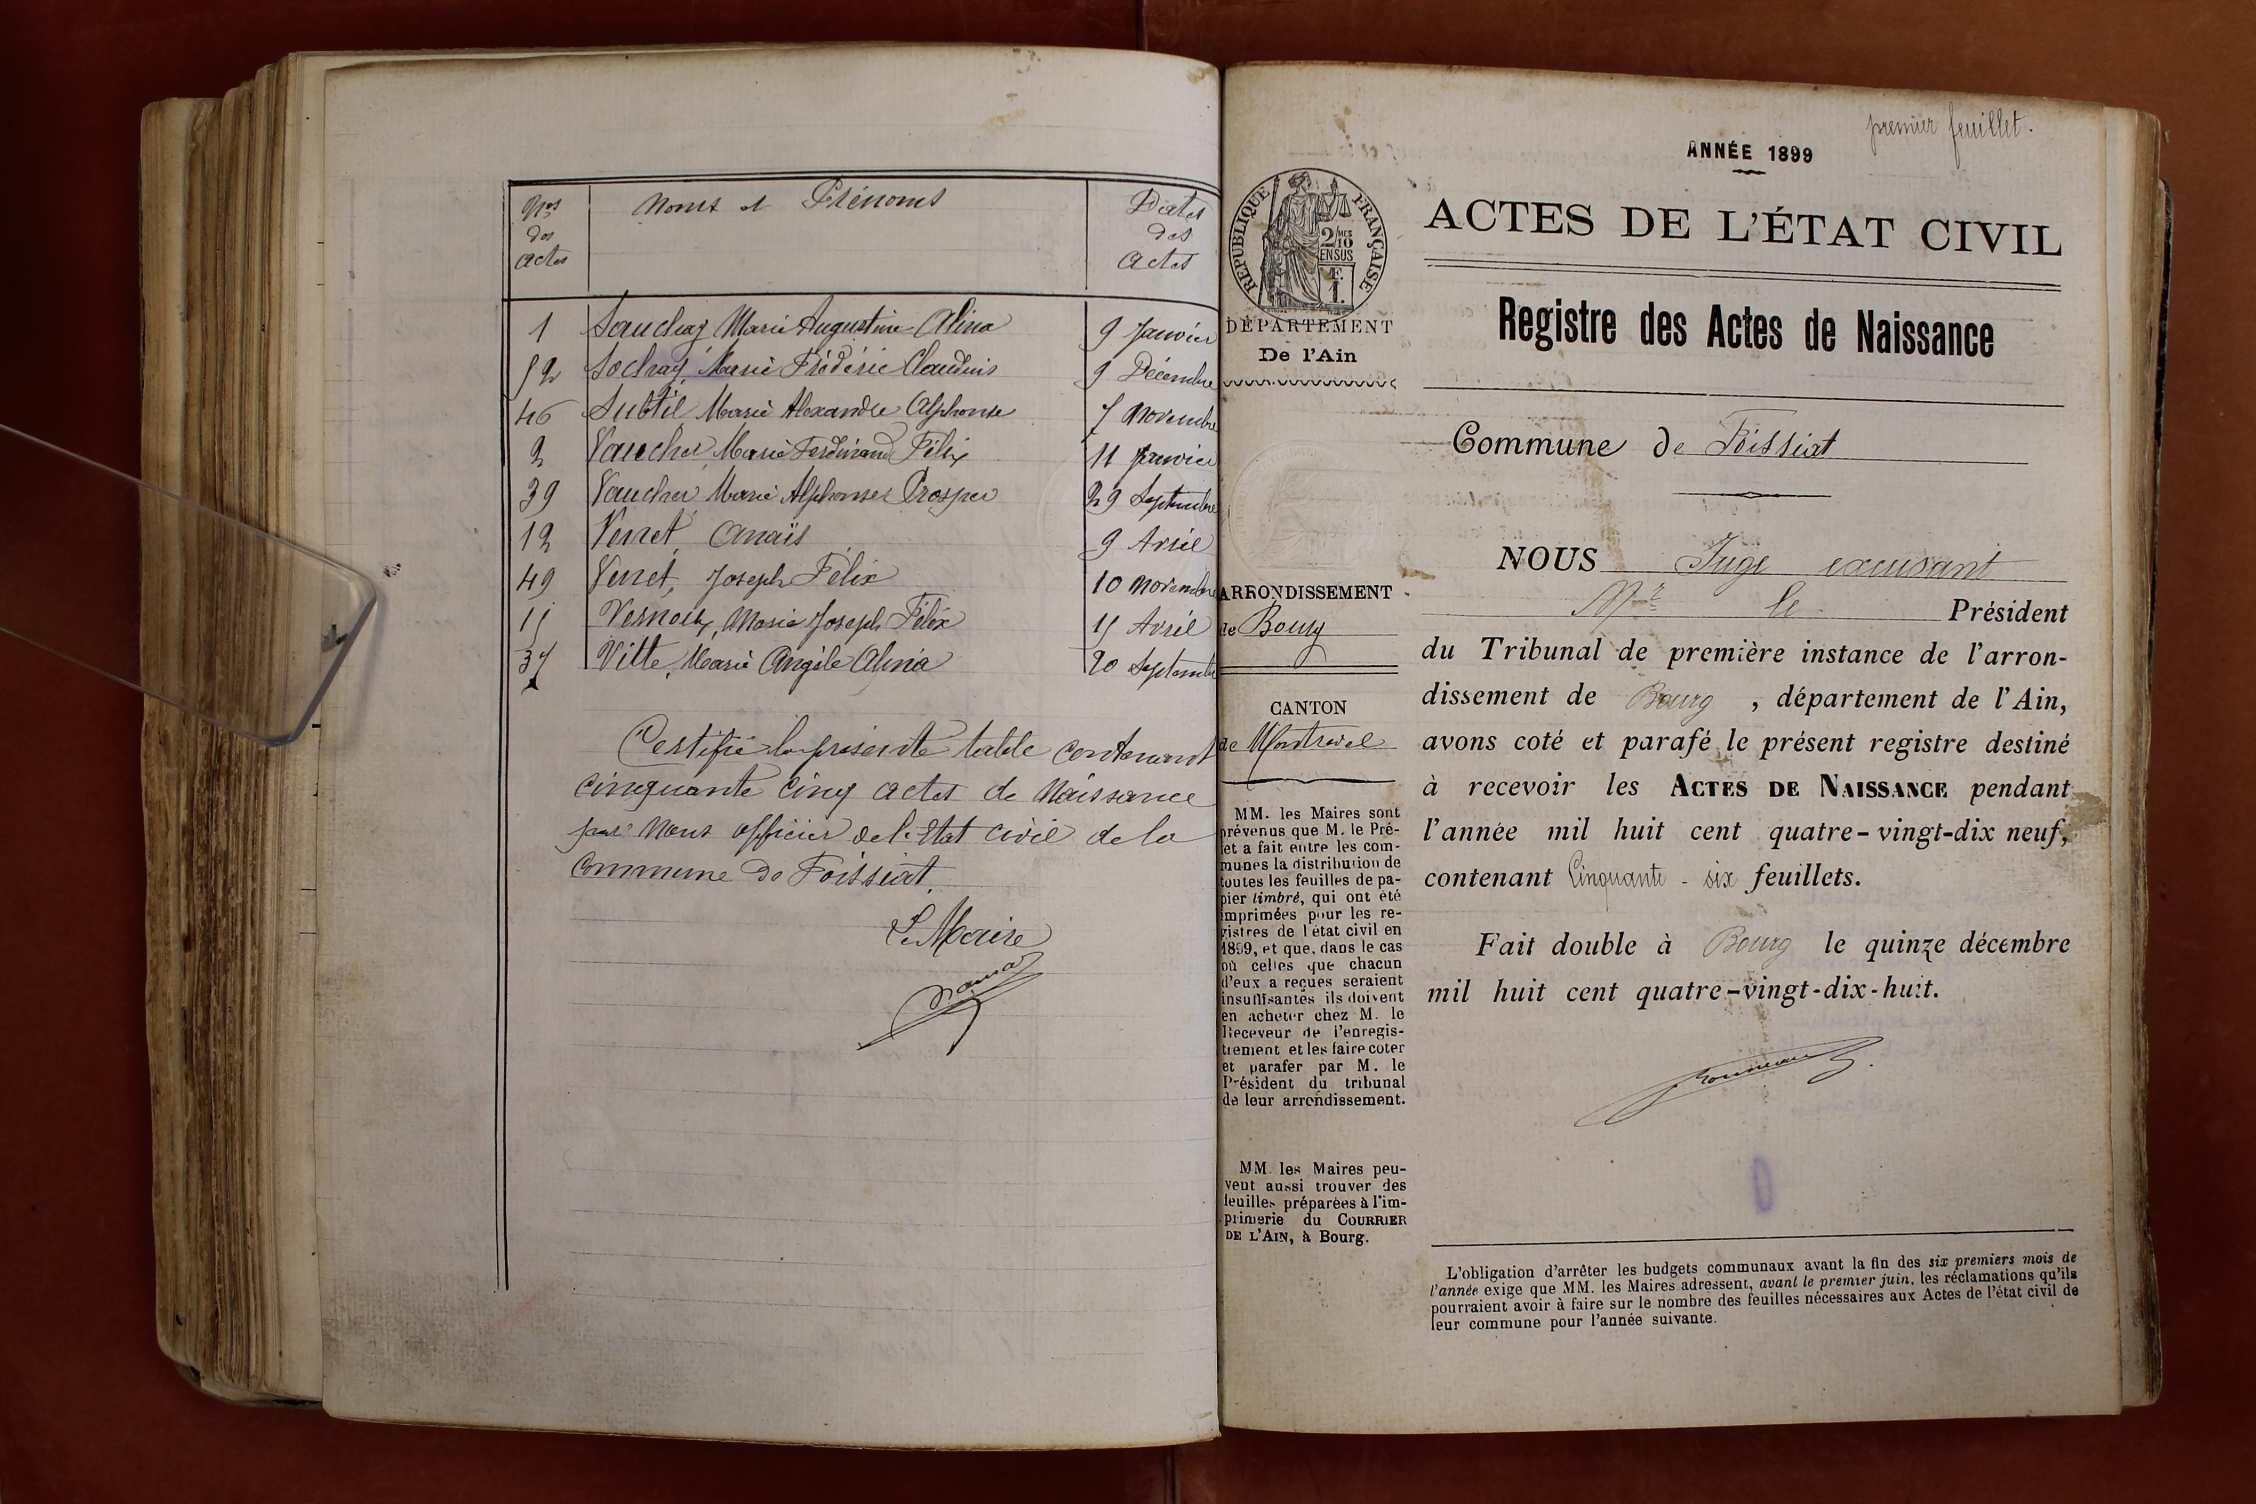 Nos
des
actes
Noms et Prénoms
Dates
des
actes
1 Sauchay Marie Augustine Alina 9 Janvier
52 Sochay, Marie Frédéric Claudius 9 Décembre
46 Subtil Marie Alexandre Alphonse 7 Novembre
2 Vaucher Marie Ferdinand Félix 11 Janvier
39 Vaucher Marie Alphonse Prosper 29 Septembre
12 Verret Anaïs 9 Avril
49 Verret, Joseph Félix 10 Novembre
15 Marie Joseph Félix 15 Avril
37 Vitte, Marie Angèle Alina 20 Septembre
Certifié la présente table contenant
cinquante cinq actes de Naissance
par Nous officier de l'Etat civil de la
Commune de Foissiat.
Le Maire
premier feuillet.
ANNÉE 1899
ACTES DE L'ÉTAT CIVIL
Registre des Actes de Naissance
RÉPUBLIQUE FRANÇAISE
2/10 MES
EN SUS
DÉPARTEMENT
De l'Ain
Commune de Foissiat
NOUS Juge excusant
Mr le Président
du Tribunal de première instance de l'arron-
dissement de Bourg , département de l'Ain,
avons coté et parafé le présent registre destiné
à recevoir les ACTES DE NAISSANCE pendant
l'année mil huit cent quatre-vingt-dix neuf,
contenant Cinquante-six feuillets.
Fait double à Bourg le quinze décembre
mil huit cent quatre-vingt-dix-huit.
ARRONDISSEMENT
de Bourg
CANTON
de Montrevel
MM. les Maires sont
prévenus que M. le Pré-
fet a fait entre les com-
munes la distribution de
toutes les feuilles de pa-
pier timbré, qui ont été
imprimées pour les re-
gistres de l'état civil en
1899, et que, dans le cas
où celles que chacun
d'eux a reçues seraient
insuffisantes ils doivent
en acheter chez M. le
Receveur de l'enregis-
trement et les faire coter
et parafer par M. le
Président du tribunal
de leur arrondissement.
MM. les Maires peu-
vent aussi trouver des
feuilles préparées à l'im-
primerie du COURRIER
DE L'AIN, à Bourg.
L'obligation d'arrêter les budgets communaux avant la fin des six premiers mois de
l'année exige que MM. les Maires adressent, avant le premier juin, les réclamations qu'ils
pourraient avoir à faire sur le nombre des feuilles nécessaires aux Actes de l'état civil de
leur commune pour l'année suivante.